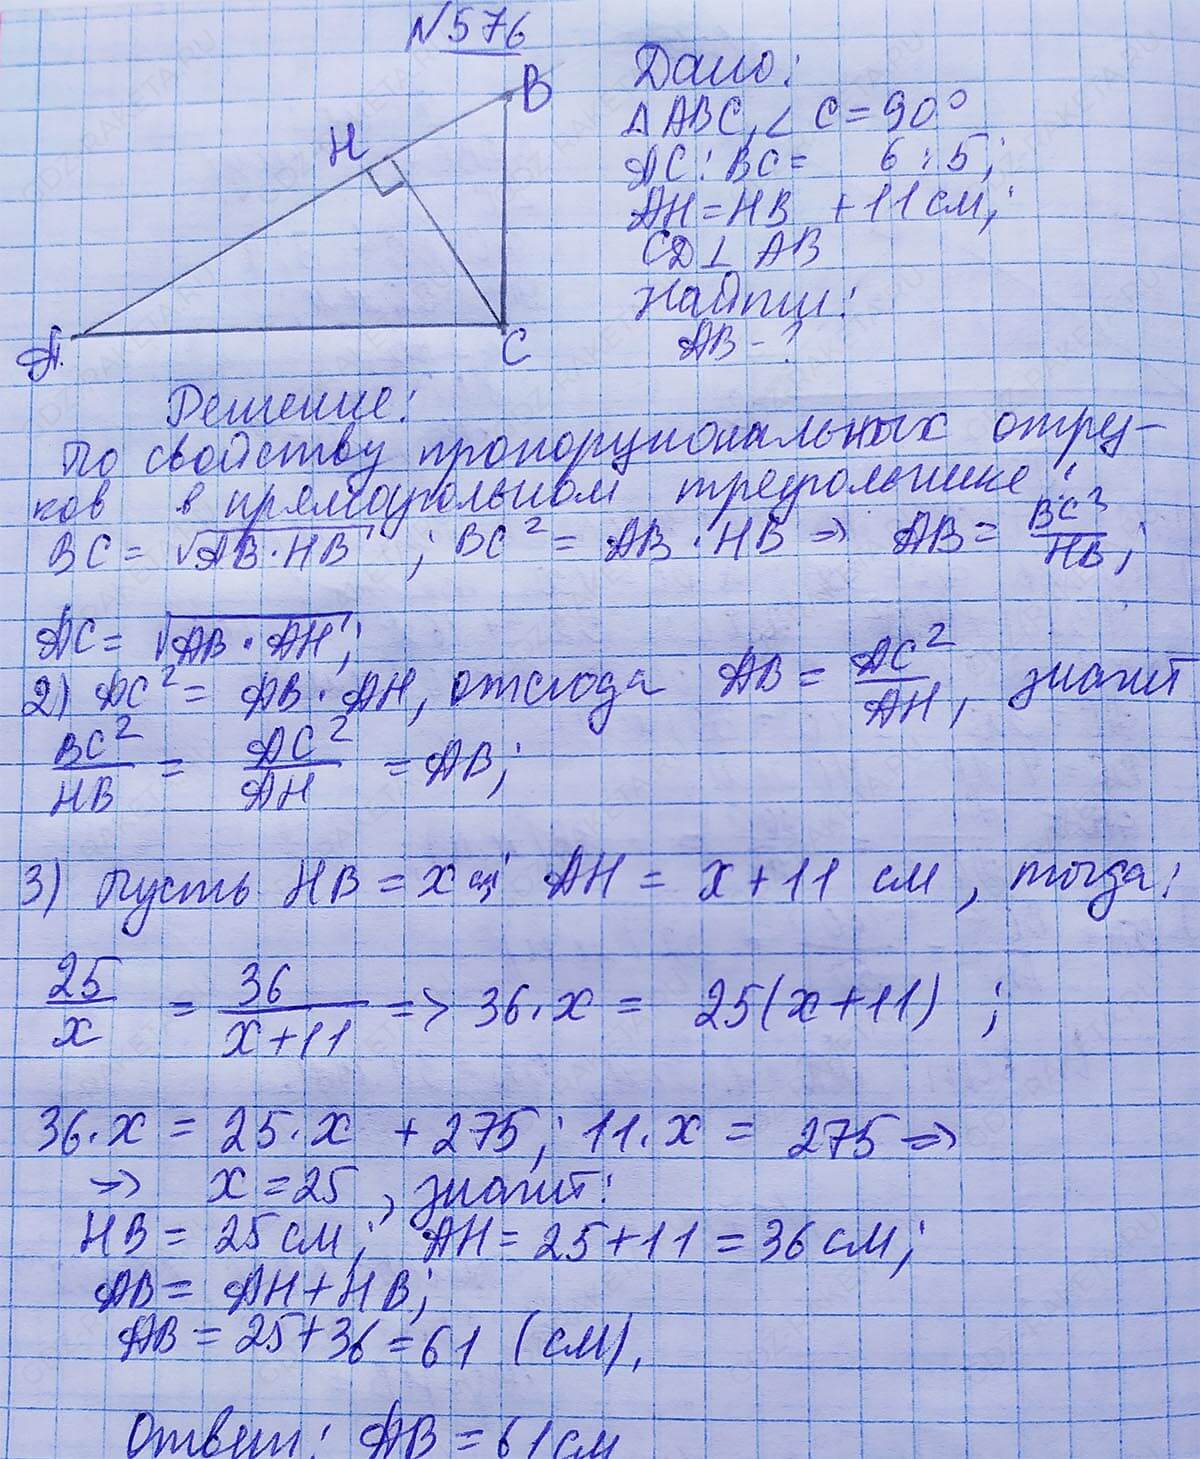 №576
B
H
A
C
Дано:
△ABC, ∠C=90°
AC:BC= 6:5;
AH=HB +11см;
CD⊥AB
Найти:
AB-?
Решение:
По свойству пропорциональных отрез-
ков в прямоугольном треугольнике:
BC=√AB·HB; BC²=AB·HB⇒ AB=BC²/HB;
AC=√AB·AH;
2) AC²=AB·AH, отсюда AB=AC²/AH, значит
BC²/HB = AC²/AH =AB;
3) Пусть HB=x см AH=x+11 см, тогда:
25/x = 36/x+11 => 36·x= 25(x+11) ;
36·x=25·x +275; 11·x= 275⇒
⇒ x=25, значит:
HB=25см; AH=25+11=36см;
AB=AH+HB;
AB=25+36=61 (см).
Ответ: AB=61см